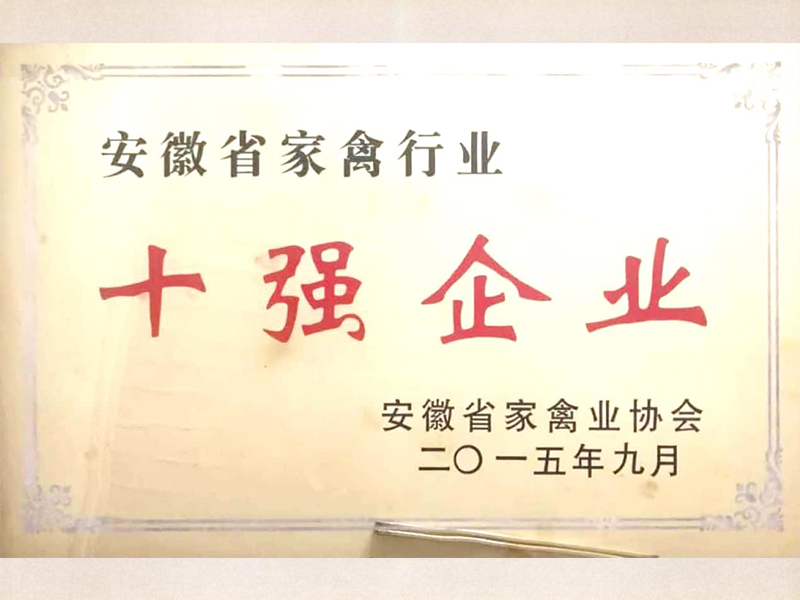 安徽省家禽行业
十强企业
安徽省家禽业协会
二〇一五年九月